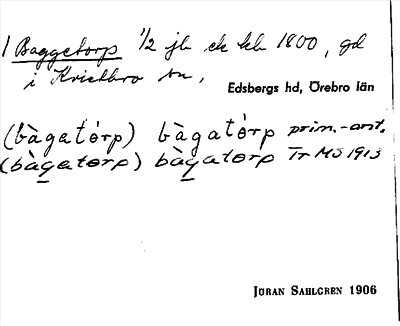 / Baggetorp 1/2 jb sk kb 1800, gd
i Kvistbro sn,
Edsbergs hd, Örebro län
(bàgatòrp) bàgatòrp prim.-ant.
(bàgatørp) bàgatørp Tr MS 1913
JÖRAN SAHLGREN 1906